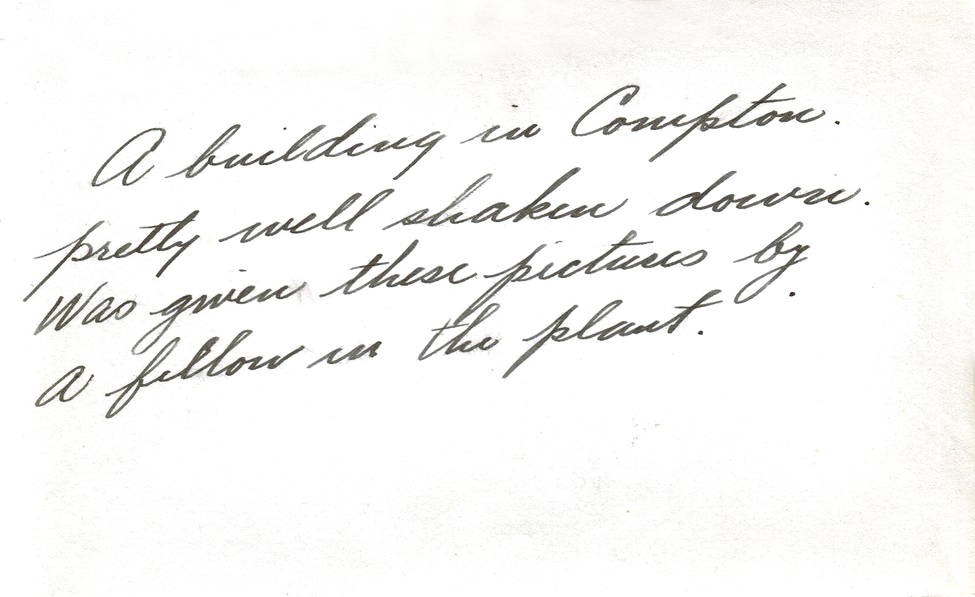 A building in Compton.
pretty well shaken down.
Was given these pictures by
a fellow in the plant.